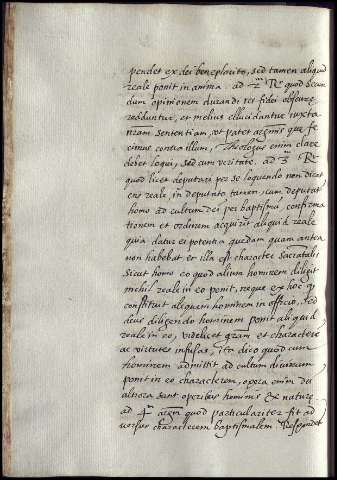 pendet ex dei beneplacito, sed tamen aliquid
reale ponit in anima. ad 2m Rr quod secun
dum opinionem durandi res fidei obscure
redduntur, et melius ellucidantur iuxta
nram sententiam, ut patet argmis que fe
cimus contra illum, Theologus enim clare
debet loqui, sed cum veritate. ad 3m Rr
quod licet deputari per se loquendo non dicat
ens reale, in deputato tamen, cum deputat
homo ad cultum dei per baptismū, confirma
tionem et ordinem acquirit aliquid reale
quia datur ei potentia quedam quam antea
non habebat et illa est character sacratalis
sicut homo eo quod alium hominem diligit
nichil reale in eo ponit, neque ex hoc qd
constituit aliquem hominem in officio, sed
deus diligendo hominem ponit aliquid
reale in eo, videlicet gram et characterē
ac virtutes infusas, ita dico quod cum
hominem admittit ad cultum divinum
ponit in eo characterem, opera enim dei
altiora sunt operibus hominis ex natura
ad 4m argm quod particulariter fit ad
versus characterem baptismalem Respondet